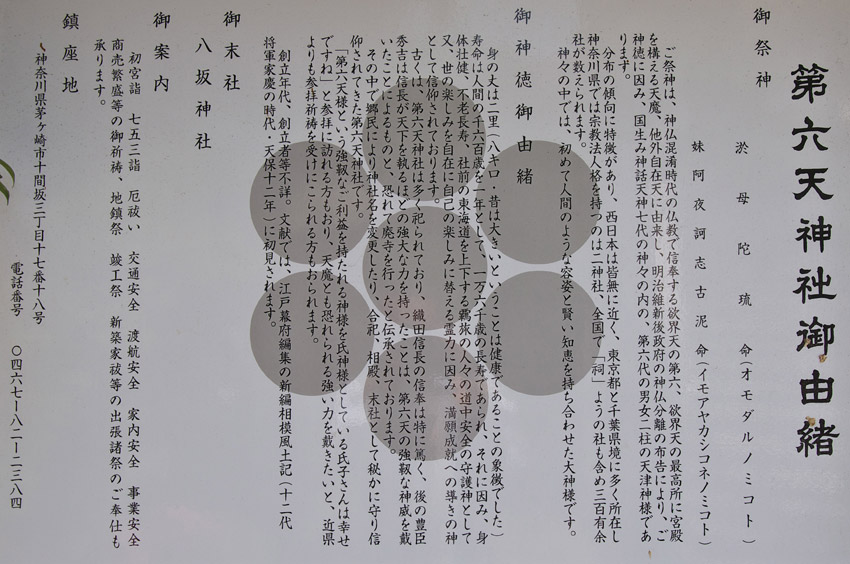 第六天神社御由緒
御祭神
淤母陀琉命(オモダルノミコト)
妹阿夜訶志古泥命(イモアヤカシコネノミコト)
ご祭神は、神仏混淆時代の仏教で信奉する欲界天の第六、欲界天の最高所に宮殿
を構える天魔、他外自在天に由来し、明治維新後政府の神仏分離の布告により、ご
神徳に因み、国生み神話天神七代の神々の内の、第六代の男女二柱の天津神様であ
ります。
分布の傾向に特徴があり、西日本は皆無に近く、東京都と千葉県境に多く所在し
神奈川県では宗教法人格を持つのは二神社、全国で「祠」ようの社も含め三百有余
社が数えられます。
神々の中では、初めて人間のような容姿と賢い知恵を持ち合わせた大神様です。
御神徳御由緒
身の丈は二里(八キロ・昔は大きいということは健康であることの象徴でした)
寿命は人間の千六百歳を一年として、一万六千歳の長寿であられ、それに因み、身
体壮健、不老長寿、社前の東海道を上下する羇旅の人々の道中安全の守護神として
又、他の楽しみを自在に自己の楽しみに替える霊力に因み、満願成就への導きの神
として信仰されております。
古くは、第六天神社は多く祀られており、織田信長の信奉は特に篤く、後の豊臣
秀吉は信長が天下を執るほどの強大な力を持ったことは、第六天の強靱な神威を戴
いたことによるものと、恐れて廃寺を行ったと伝承されております。
その中で郷民により神社名を変更したり、合祀、相殿、末社として秘かに守り信
仰されてきた第六天神社です。
「第六天様という強靱なご利益を持たれる神様を氏神様としている氏子さんは幸せ
ですね」と参拝に訪れる方もおり、天魔とも恐れられる強い力を戴きたいと、近県
よりも参拝祈祷を受けにこられる方もおられます。
創立年代、創立者等不詳。文献では、江戸幕府編集の新編相模風土記(十二代
将軍家慶の時代・天保十二年)に初見されます。
御末社
八坂神社
御案内
初宮詣 七五三詣 厄祓い 交通安全 渡航安全 家内安全 事業安全
商売繁盛等の御祈祷、地鎮祭 竣工祭 新築家祓等の出張諸祭のご奉仕も
承ります。
鎮座地
神奈川県茅ヶ崎市十間坂三丁目十七番十八号
電話番号 〇四六七ー八二ー二三八四